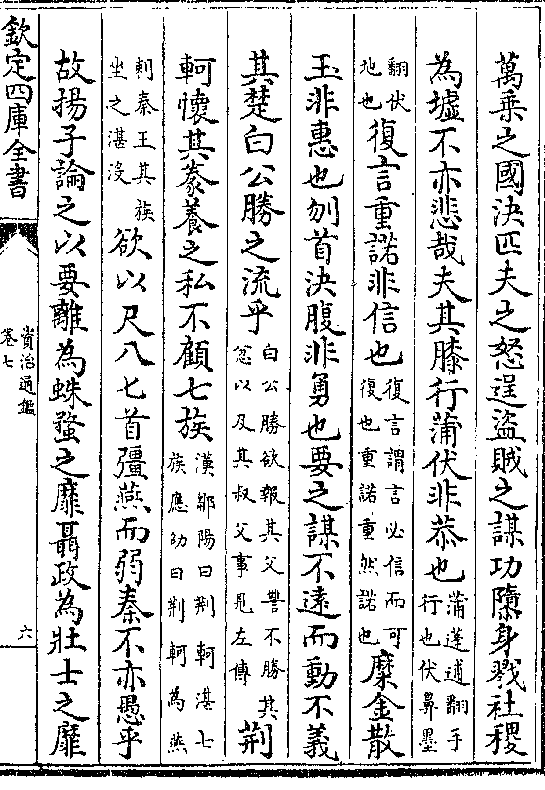 萬乗之國決匹夫之怒逞盜賊之謀功隳身戮社稷
為墟不亦悲哉夫其膝行蒲伏非恭也蒲蓬逋翻手行也伏鼻墨
翻伏地也復言重諾非信也復言謂言必信而可復也重諾重然諾也糜金散
玉非惠也刎首決腹非勇也要之謀不遠而動不義
其楚白公勝之流乎白公勝欲報其父讐不勝其忿以及其叔父事見左傳荆
軻懷其豢養之私不顧七族漢鄒陽曰荆軻湛七族應劭曰荆軻為燕
刺秦王其族坐之湛沒欲以尺八匕首彊燕而弱秦不亦愚乎
故揚子論之以要離為蛛蝥之靡聶政為壯士之靡
欽定四庫全書
資治通鑑
卷七
六